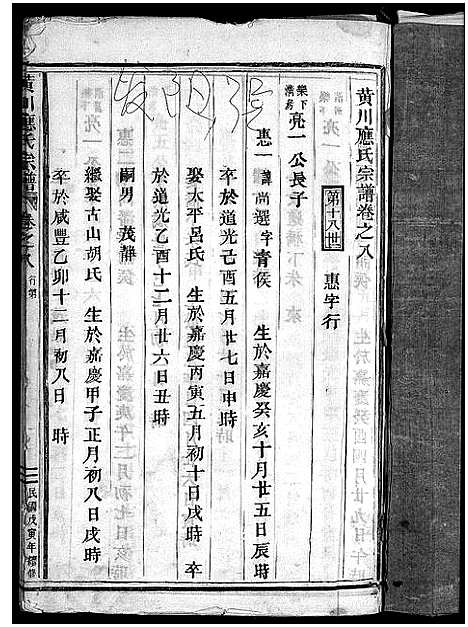 黄川應氏宗譜卷之八
第十八世 惠字行
樂下
濟房
亮一公長子
惠一 諱尚選 字青侯 生於嘉慶癸亥十月廿五日辰時
卒於道光己酉五月廿七日申時
娶太平呂氏 生於嘉慶丙寅五月初十日戌時 卒
於道光乙酉十二月廿六日丑時
嗣男 茂靜
繼娶古山胡氏 生於嘉慶甲子正月初八日戌時
卒於咸豐乙卯十二月初八日 時
黄川應氏宗譜 卷之八 行第 一 民國戊寅年續修